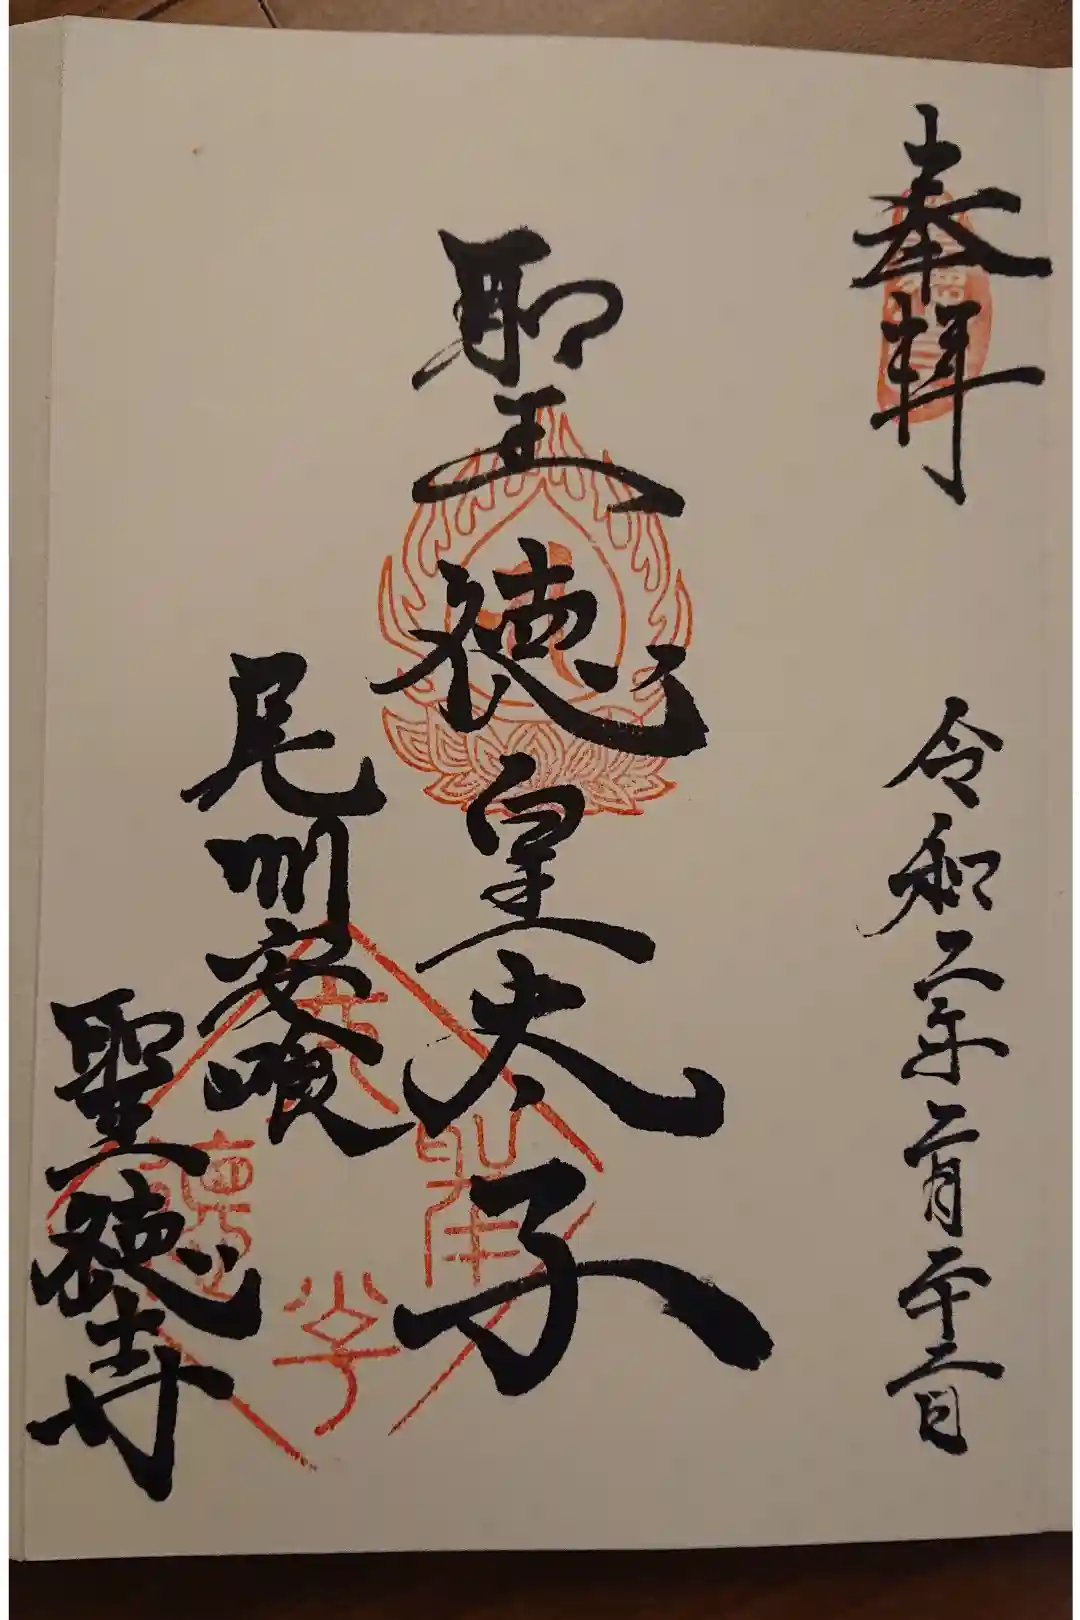 奉拝 令和二年二月二十二日
聖徳皇太子
尾州安喰
聖徳寺